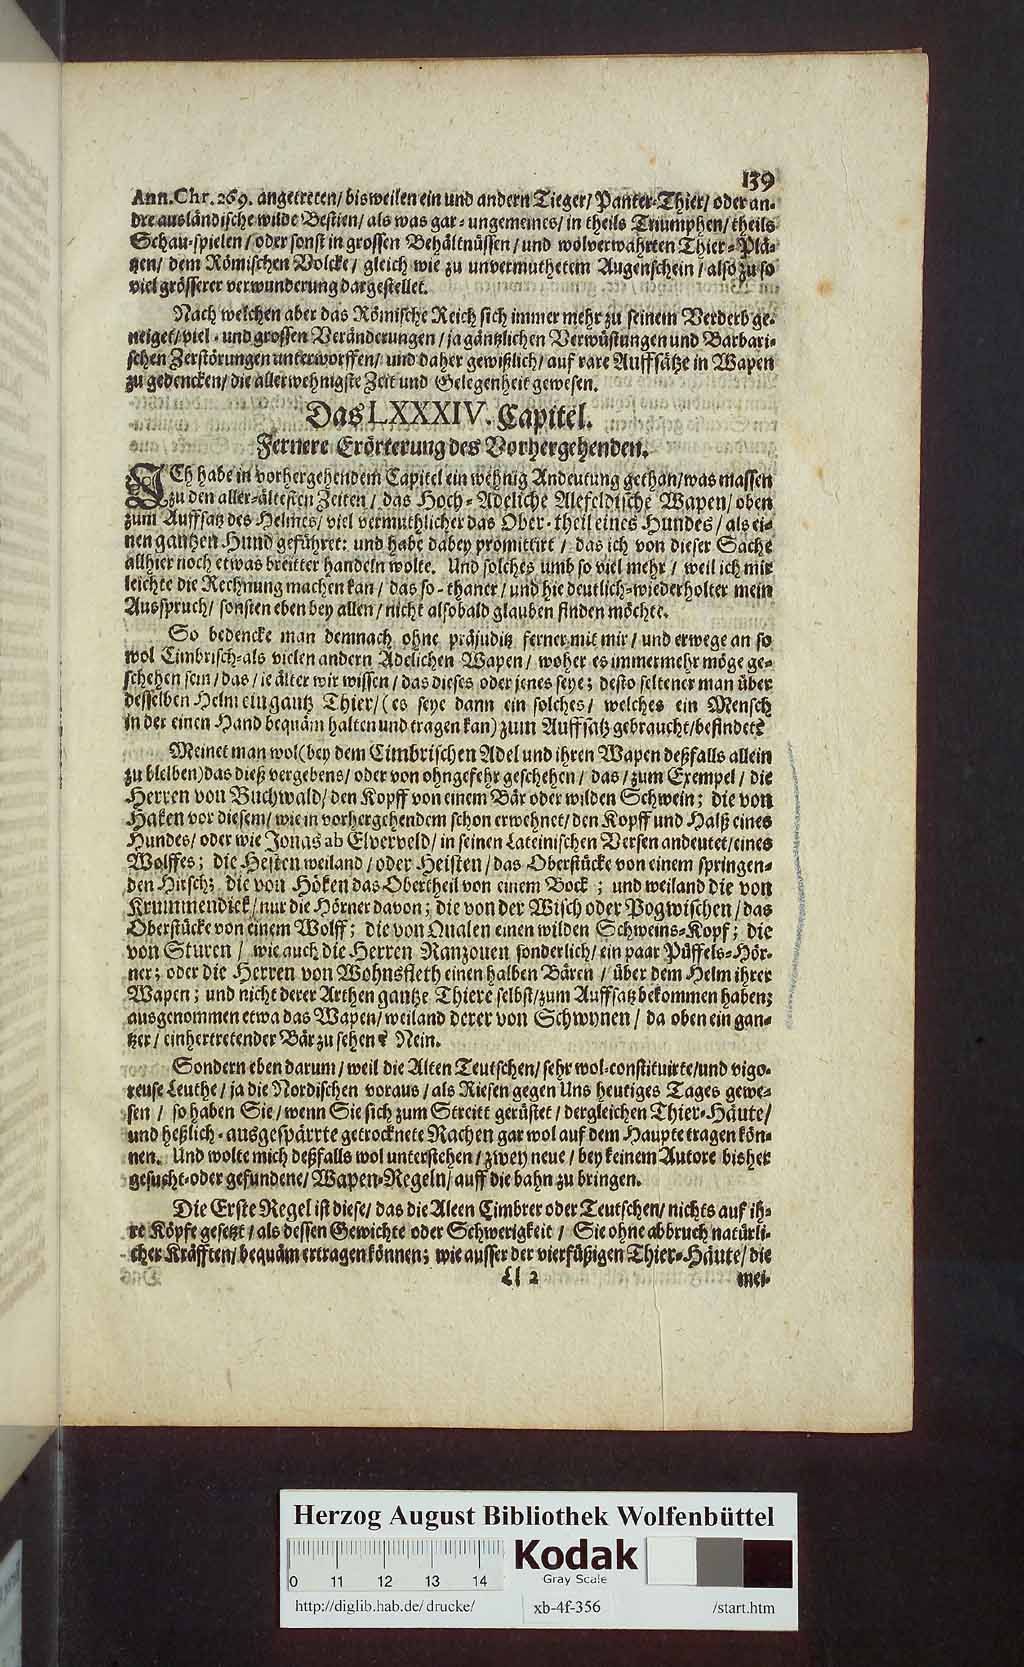 139
Ann. Chr. 269. angetreten/ bisweilen ein und andern Tieger/ Panter-Thier/ oder an-
dre ausländische wilde Bestien/ als was gar-ungemeines/ in theils Triumphen/ theils
Schau-spielen/ oder sonst in grossen Behältnüssen/ und wolverwahrten Thier-Plä-
tzen/ dem Römischen Volcke/ gleich wie zu unvermuthetem Augenschein/ also zu so
viel grösserer verwunderung dargestellet.
Nach welchen aber das Römische Reich sich immer mehr zu seinem Verderb ge-
neiget/ viel- und grossen Veränderungen/ ja gäntzlichen Verwüstungen und Barbari-
schen Zerstörungen unterworffen/ und daher gewißlich/ auf rare Auffsätze in Wapen
zu gedencken/ die allerwehnigste Zeit und Gelegenheit gewesen.
Das LXXXIV. Capitel.
Fernere Erörterung des Vorhergehenden.
ICh habe in vorhergehendem Capitel ein wehnig Andeutung gethan/ was massen
zu den aller-ältesten Zeiten/ das Hoch-Adeliche Alefeldische Wapen/ oben
zum Auffsatz des Helmes/ viel vermuthlicher das Ober-theil eines Hundes/ als ei-
nen gantzen Hund geführet: und habe dabey promittirt/ das ich von dieser Sache
allhier noch etwas breitter handeln wolte. Und solches umb so viel mehr/ weil ich mir
leichte die Rechnung machen kan/ das so-thaner/ und hie deutlich-wiederholter mein
Ausspruch/ sonsten eben bey allen/ nicht alsobald glauben finden möchte.
So bedencke man demnach ohne präjuditz ferner mit mir/ und erwege an so
wol Cimbrisch-als vielen andern Adelichen Wapen/ woher es immermehr möge ge-
schehen sein/ das/ ie älter wir wissen/ das dieses oder jenes seye; desto seltener man über
desselben Helm ein gantz Thier/ (es seye dann ein solches/ welches ein Mensch
in der einen Hand bequäm halten und tragen kan) zum Auffsatz gebraucht/ befindet?
Meinet man wol (bey dem Cimbrischen Adel und ihren Wapen deßfalls allein
zu bleiben) das dieß vergebens/ oder von ohngefehr geschehen/ das/ zum Exempel/ die
Herren von Buchwald/ den Kopff von einem Bär oder wilden Schwein; die von
Haken vor diesem/ wie in vorhergehendem schon erwehnet/ den Kopff und Halß eines
Hundes/ oder wie Jonas ab Elverveld/ in seinen Lateinischen Versen andeutet/ eines
Wolffes; die Hesten weiland/ oder Heisten/ das Oberstücke von einem springen-
den Hirsch; die von Höken das Obertheil von einem Bock; und weiland die von
Krummendiek/ nur die Hörner davon; die von der Wisch oder Pogwischen/ das
Oberstücke von einem Wolff; die von Qualen einen wilden Schweins-Kopf; die
von Sturen/ wie auch die Herren Ranzouen sonderlich/ ein paar Püffels-Hör-
ner; oder die Herren von Wohnsfleth einen halben Bären/ über dem Helm ihrer
Wapen; und nicht derer Arthen gantze Thiere selbst/ zum Auffsatz bekommen haben;
ausgenommen etwa das Wapen/ weiland derer von Schwynen/ da oben ein gan-
tzer/ einhertretender Bär zu sehen? Nein.
Sondern eben darum/ weil die Alten Teutschen/ sehr wol-constituirte/ und vigo-
reuse Leuthe/ ja die Nordischen voraus/ als Riesen gegen Uns heutiges Tages gewe-
sen/ so haben Sie/ wenn Sie sich zum Streitt gerüstet/ dergleichen Thier-Häute/
und heßlich-ausgespärrte getrocknete Rachen gar wol auf dem Haupte tragen kön-
nen. Und wolte mich deßfalls wol unterstehen/ zwey neue/ bey keinem Autore bisher
gesucht-oder gefundene/ Wapen-Regeln/ auff die bahn zu bringen.
Die Erste Regel ist diese/ das die Alten Cimbrer oder Teutschen/ nichts auf ih-
re Köpfe gesetzt/ als dessen Gewichte oder Schwerigkeit/ Sie ohne abbruch natürli-
cher Kräfften/ bequäm ertragen können; wie ausser der vierfüßigen Thier-Häute/ die
Ll 2
mei-
Herzog August Bibliothek Wolfenbüttel
0 11 12 13 14
Kodak
Gray Scale
http://diglib.hab.de/drucke/
xb-4f-356
/start.htm